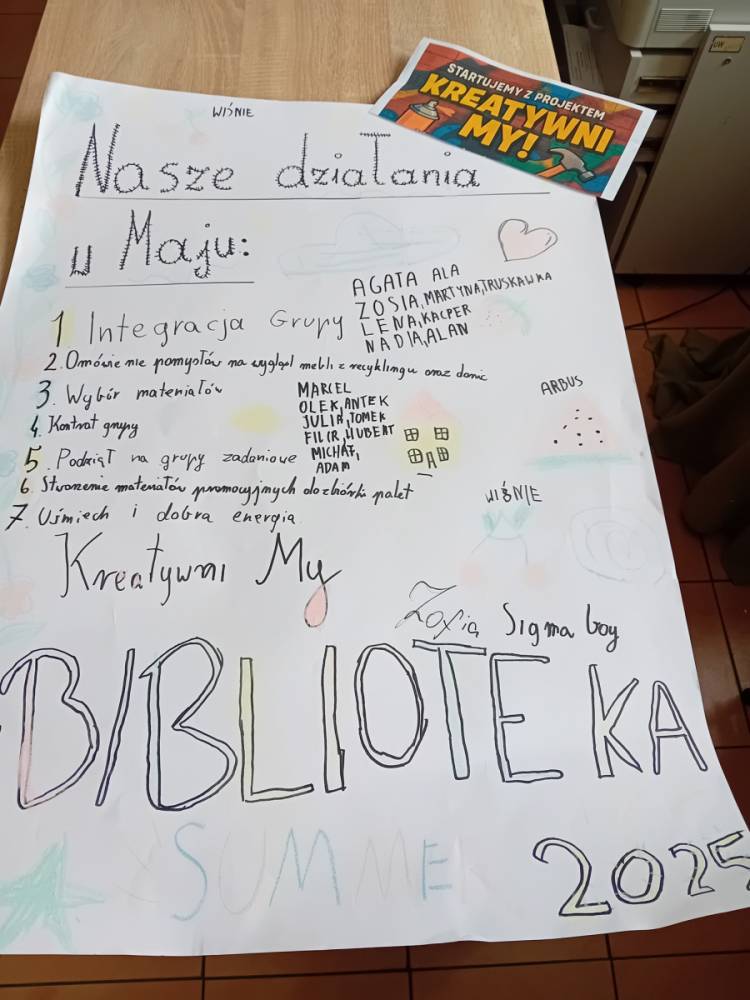 WIŚNIE
STARTUJEMY Z PROJEKTEM
KREATYWNI
MY!
Nasze działania
w Maju:
AGATA ALA
ZOSIA, MARTYNA, TRUSKAWKA
LENA, KACPER
NADIA, ALAN
1 Integracja Grupy
2. Omówienie pomysłów na wygląd mebli z recyklingu oraz donic
3. Wybór materiałów
MARCEL
OLEK, ANTEK
JULIA, TOMEK
FILIP, HUBERT
MICHAŁ,
ADAM
ARBUS
4. Kontrat grupy
5. Podział na grupy zadaniowe
6. Stworzenie materiałów promocyjnych do zbiórki palet
WIŚNIE
7. Uśmiech i dobra energia
Kreatywni My
Zosia Sigma boy
BIBLIOTEKA
SUMME
2025